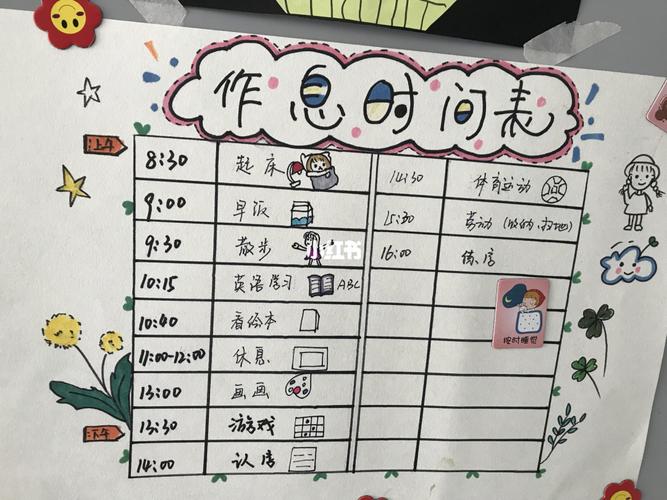 作息时间表
上午
8:30 起床
9:00 早饭
9:30 散步
小红书
10:15 英语学习 ABC
10:40 看绘本
11:00-12:00 休息
13:00 画画
下午
13:30 游戏
14:00 认字
14:30 体育运动
15:30 劳动（收纳、扫地）
16:00 练字
按时睡觉